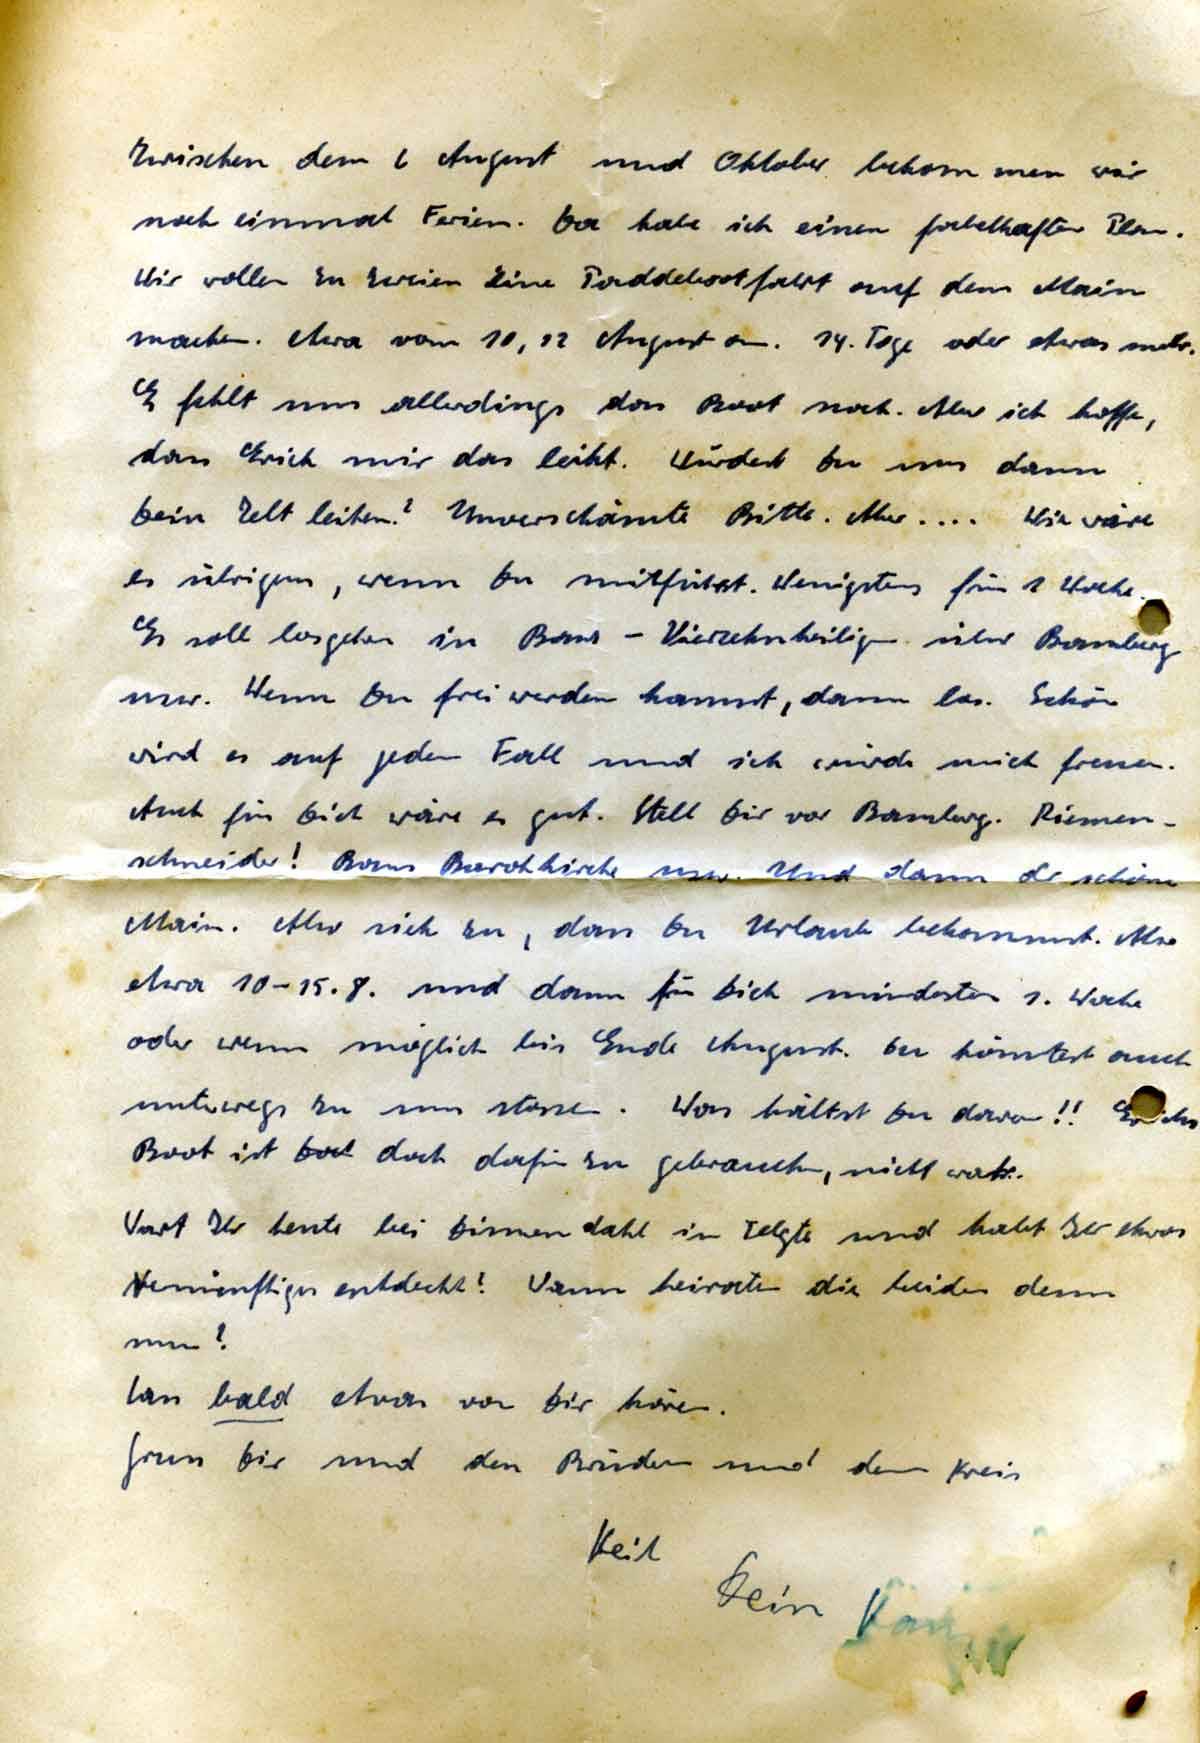 Zwischen dem 6 August und Oktober bekommen wir
noch einmal Ferien. Da habe ich einen fabelhaften Plan.
Wir wollen zu zweien eine Paddelbootfahrt auf dem Main
machen. Etwa vom 10, 12 August an. 14. Tage oder etwas mehr.
Es fehlt uns allerdings das Boot noch. Aber ich hoffe,
dass Erich mir das leiht. Würdest Du uns dann
Dein Zelt leihen? Unverschämte Bitte. Aber .... Wie wäre
es übrigens, wenn Du mitführst. Wenigstens für 1 Woche.
Es soll losgehen in Banz - Vierzehnheiligen über Bamberg
usw. Wenn Du frei werden kannst, dann los. Schön
wird es auf jeden Fall und ich würde mich freuen.
Auch für Dich wäre es gut. Stell Dir vor Bamberg. Riemen-
schneider! Banz Barockkirche usw. Und dann der schöne
Main. Also sieh zu, dass Du Urlaub bekommst. Also
etwa 10-15.8. und dann für Dich mindesten 1. Woche
oder wenn möglich bis Ende August. Du könntest auch
unterwegs zu uns stossen. Was hältst Du davon!! Erichs
Boot ist doch dafür zu gebrauchen, nicht wahr.
Wart Ihr heute bei Dinnendahl in Telgte und habt Ihr etwas
Vernünftiges entdeckt? Wann heiraten die beiden denn
nun?
Lass bald etwas von Dir hören.
Gruss Dir und den Brüdern und dem Kreis
Heil
Dein